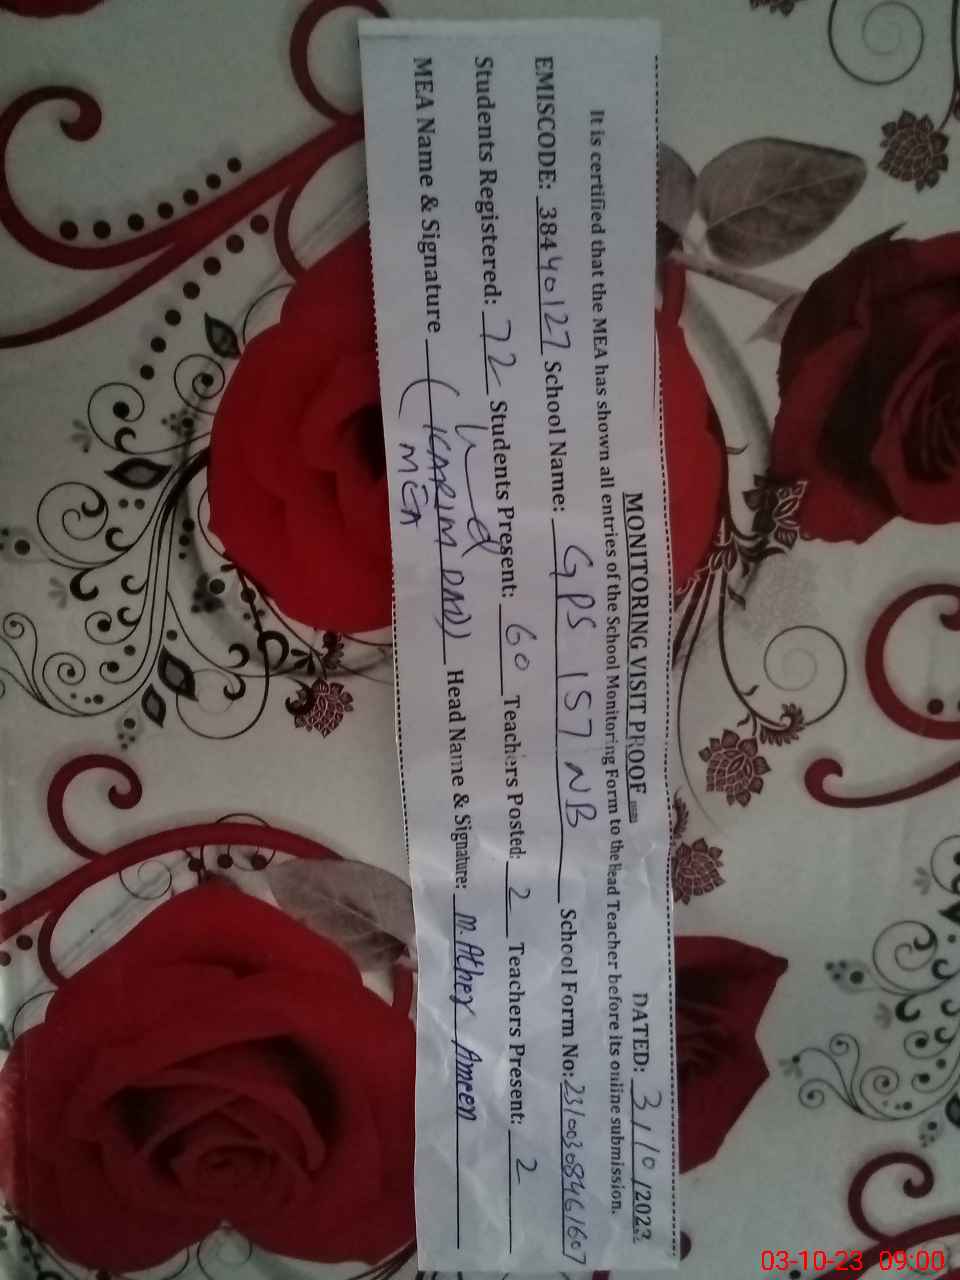 MONITORING VISIT PROOF DATED: 3/10/2023
It is certified that the MEA has shown all entries of the School Monitoring Form to the Head Teacher before its online submission.
EMISCODE: 38440127 School Name: GPS 157 NB School Form No: 23100308461607
Students Registered: 72 Students Present: 60 Teachers Posted: 2 Teachers Present: 2
MEA Name & Signature (KARIM DAD) Head Name & Signature: M. Ather Ameen
MEA
03-10-23 09:00